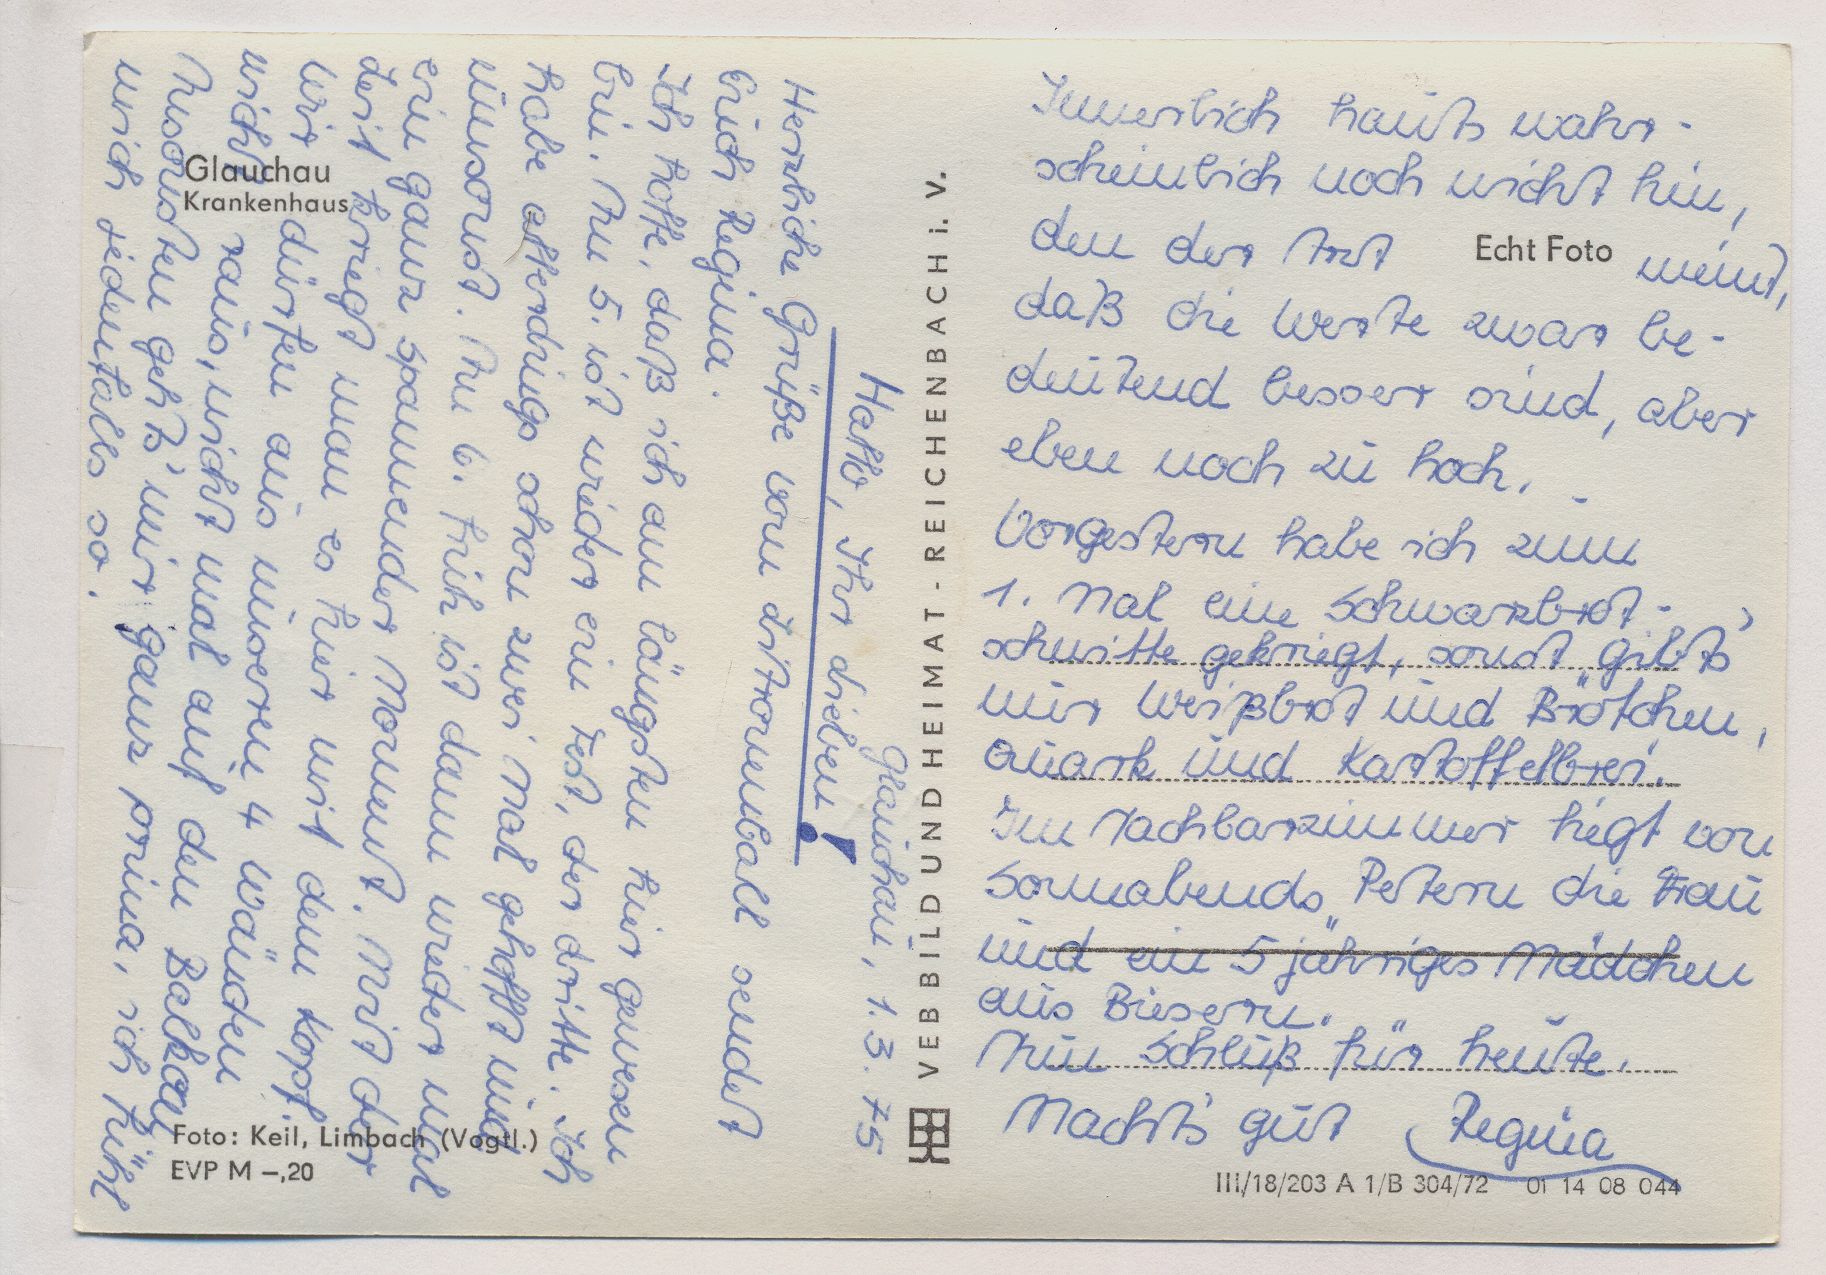 Glauchau, 1.3.75
Hallo, Ihr Lieben!
Herzliche Grüße vom sendet
Euch Regina.
Ich hoffe, daß ich am längsten hier gewesen
bin. Am 5. ist wieder ein Test, der dritte. Ich
habe allerdings schon zwei Mal gehofft und
umsonst. Am 6. früh ist dann wieder mal
ein ganz spannender Moment. Mit der
Zeit kriegt man es hier mit dem Kopf.
Wir dürfen aus unseren 4 Wänden
nicht raus, nicht mal auf den Balkon.
Ansonsten geht's mir ganz prima, ich fühl
mich jedenfalls so.
Glauchau
Krankenhaus
Foto: Keil, Limbach (Vogtl.)
EVP M –,20
VEB BILD UND HEIMAT - REICHENBACH i. V.
Innerlich hauts wahr-
scheinlich noch nicht hin,
den der Arzt meint,
Echt Foto
daß die Werte zwar be-
deutend besser sind, aber
eben noch zu hoch. -
Vorgestern habe ich zum
1. Mal eine Schwarzbrot-
schnitte gekriegt, sonst gibt's
nur Weißbrot und Brötchen,
Quark und Kartoffelbrei.
Im Nachbarzimmer liegt von
Sonnabends Petern die Frau
und ein 5 jähriges Mädchen
aus Biesern.
Nun Schluß für heute.
Macht's gut Regina
III/18/203 A 1/B 304/72 01 14 08 044